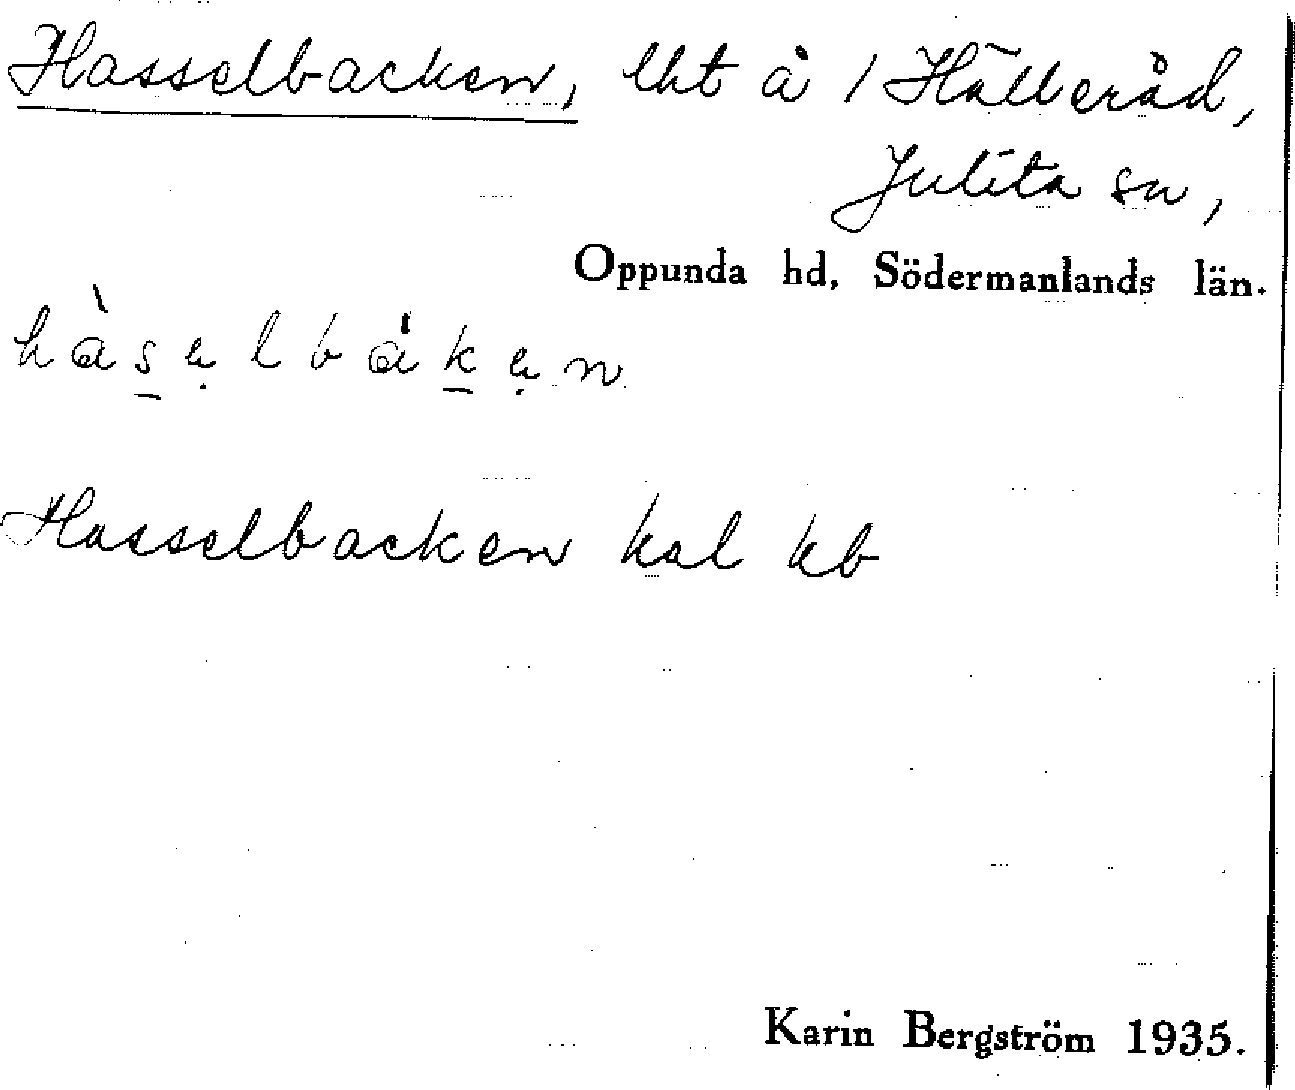 Hasselbacken, lht å 1 Hälleråd,
Julita sn,
Oppunda hd, Södermanlands län.
hàsẹlbákẹn
Hasselbacken kal kb
Karin Bergström 1935.